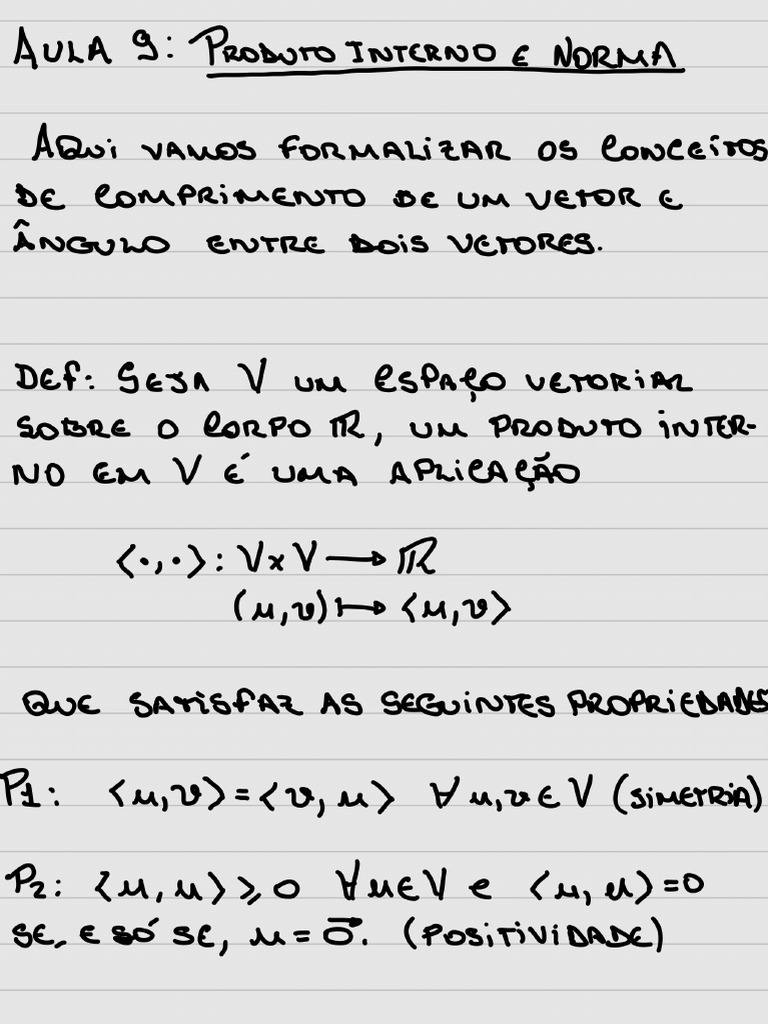 AULA 9: PRODUTO INTERNO E NORMA
AQUI VAMOS FORMALIZAR OS CONCEITOS
DE COMPRIMENTO DE UM VETOR E
ÂNGULO ENTRE DOIS VETORES.
DEF: SEJA V UM ESPAÇO VETORIAL
SOBRE O CORPO ℝ, UM PRODUTO INTER-
NO EM V É UMA APLICAÇÃO
⟨·,·⟩: V×V → ℝ
(u,v) ↦ ⟨u,v⟩
QUE SATISFAZ AS SEGUINTES PROPRIEDADES
P1: ⟨u,v⟩ = ⟨v,u⟩ ∀u,v ∈ V (SIMETRIA)
P2: ⟨u,u⟩ ⩾ 0 ∀u∈V e ⟨u,u⟩=0
SE, E SÓ SE, u = 0⃗. (POSITIVIDADE)